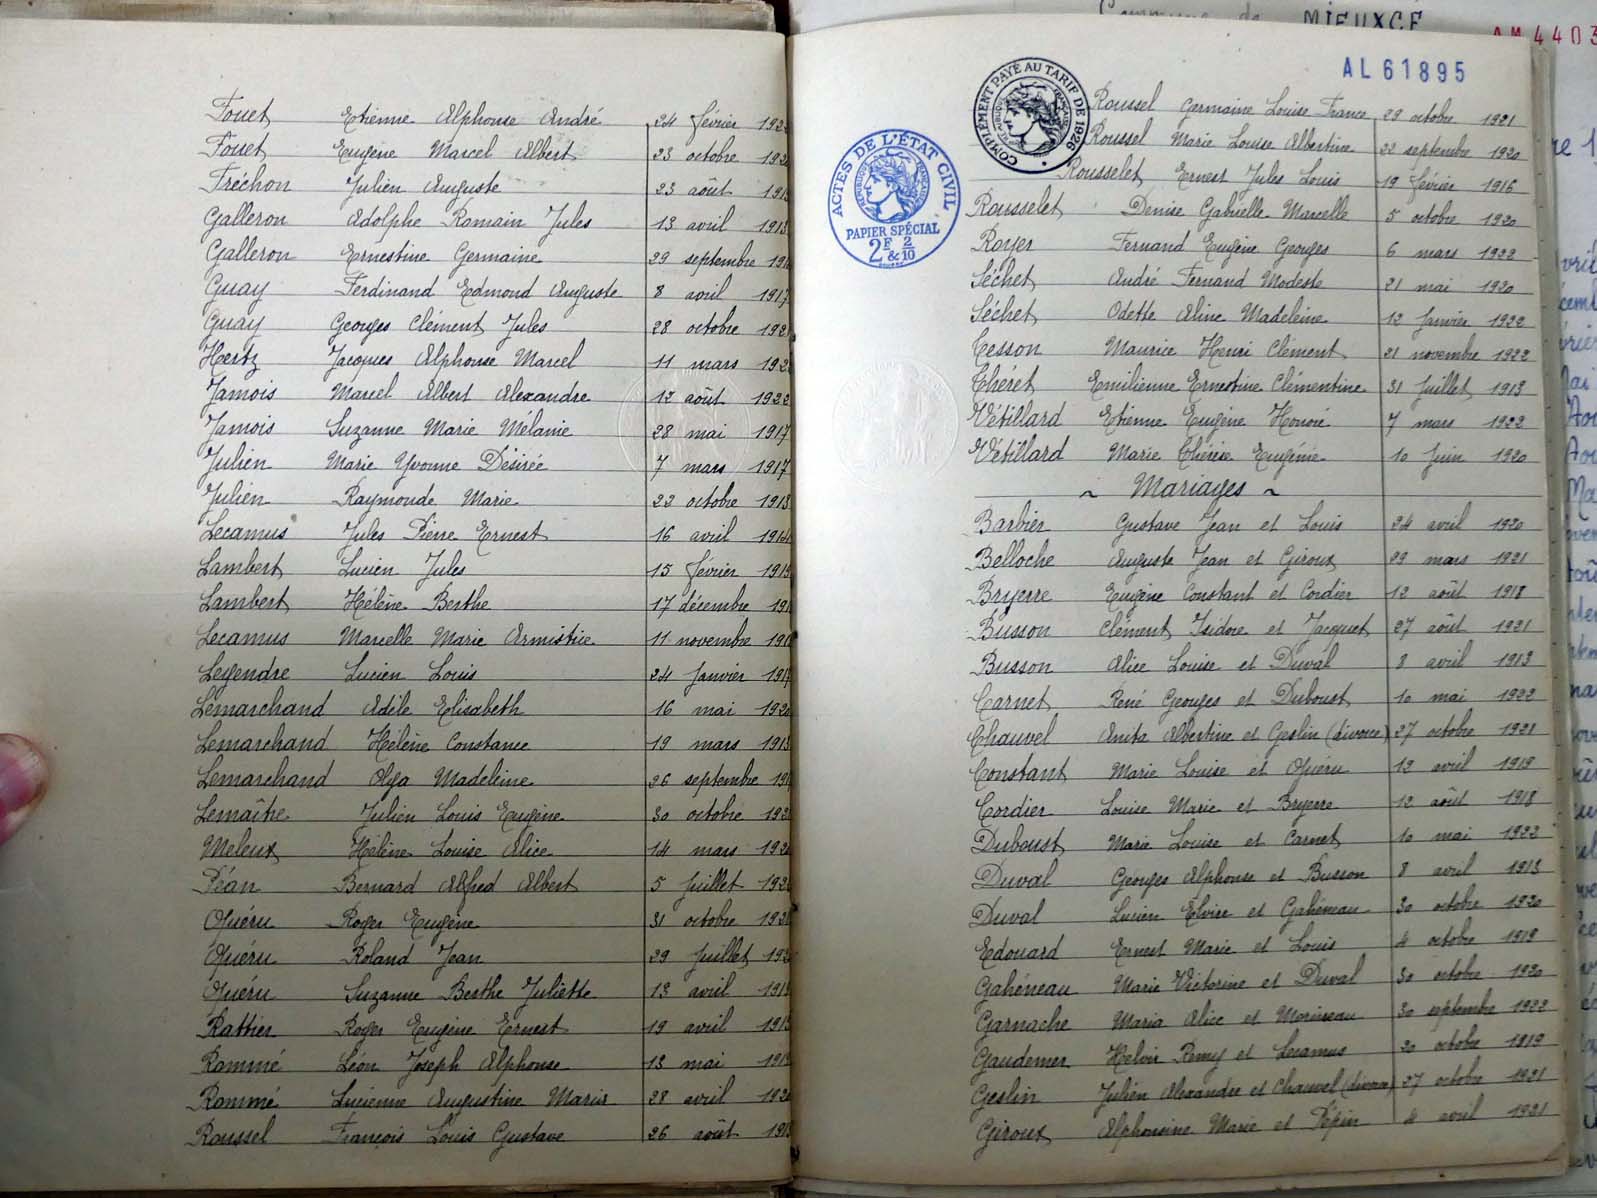 Fouet Etienne Alphonse André 24 février
Fouet Eugène Marcel Albert 23 octobre
Fréchon Julien Auguste 23 août
Galleron Adolphe Romain Jules 13 avril 1913
Galleron Ernestine Germaine 29 septembre
Guay Ferdinand Edmond Auguste 8 avril 1917
Guay Georges Clément Jules 28 octobre
Hertz Jacques Alphonse Marcel 11 mars
Jamois Marcel Albert Alexandre 12 août 1922
Jamois Suzanne Marie Mélanie 28 mai 1917
Julien Marie Yvonne Désirée 7 mars 1917
Julien Raymonde Marie 22 octobre 1913
Lecamus Jules Pierre Ernest 16 avril 1914
Lambert Lucien Jules 15 février
Lambert Hélène Berthe 17 décembre
Lecamus Marcelle Marie Armistice 11 novembre
Legendre Lucien Louis 24 Janvier
Lemarchand Adèle Elisabeth 16 mai
Lemarchand Hélène Constance 19 mars 1913
Lemarchand Olga Madeleine 26 septembre
Lemaître Julien Louis Eugène 30 octobre
Meleux Hélène Louise Alice 14 mars
Péan Bernard Alfred Albert 5 Juillet
Quéru Roger Eugène 31 octobre
Quéru Roland Jean 29 Juillet
Quéru Suzanne Berthe Juliette 13 avril
Rattier Roger Eugène Ernest 19 avril
Rommé Léon Joseph Alphonse 13 mai
Rommé Lucienne Augustine Marie 28 avril
Roussel François Louis Gustave 26 août
MIEUXCÉ
AM 4403
AL 61895
COMPLÉMENT PAYÉ AU TARIF DE 1926
ACTES DE L'ÉTAT CIVIL
RÉPUBLIQUE FRANÇAISE
PAPIER SPÉCIAL
2F & 2/10
Roussel Germaine Louise France 29 octobre 1921
Roussel Marie Louise Albertine 22 septembre 1920
Rousselet Ernest Jules Louis 19 février 1916
Rousselet Denise Gabrielle Marcelle 5 octobre 1920
Royer Fernand Eugène Georges 6 mars 1922
Séchet André Fernand Modeste 21 mai 1920
Séchet Odette Aline Madeleine 12 Janvier 1922
Tesson Maurice Henri Clément 21 novembre 1922
Théret Emilienne Ernestine Clémentine 31 Juillet 1913
Vétillard Etienne Eugène Honoré 7 mars 1922
Vétillard Marie Thérèse Eugénie 10 Juin 1920
~ Mariages ~
Barbier Gustave Jean et Louis 24 avril 1920
Belloche Auguste Jean et Giroux 29 mars 1921
Bryerre Eugène Constant et Cordier 12 août 1918
Busson Clément Isidore et Jacquet 27 août 1921
Busson Alice Louise et Duval 8 avril 1913
Carnet René Georges et Duboust 10 mai 1922
Chauvel Anita Albertine et Geslin (divorce) 27 octobre 1921
Constant Marie Louise et Quéru 12 avril 1919
Cordier Louise Marie et Bryerre 12 août 1918
Duboust Marie Louise et Carnet 10 mai 1922
Duval Georges Alphonse et Busson 8 avril 1913
Duval Lucien Elvire et Gahéneau 30 octobre 1920
Edouard Ernest Marie et Louis 4 octobre 1919
Gahéneau Marie Victorine et Duval 30 octobre 1920
Garnache Maria Alice et Morineau 30 septembre 1922
Gaudemer Helvir Remy et Lecamus 20 octobre 1919
Geslin Julien Alexandre et Chauvel (divorce) 27 octobre 1921
Giroux Alphonsine Marie et Pépin 4 avril 1921